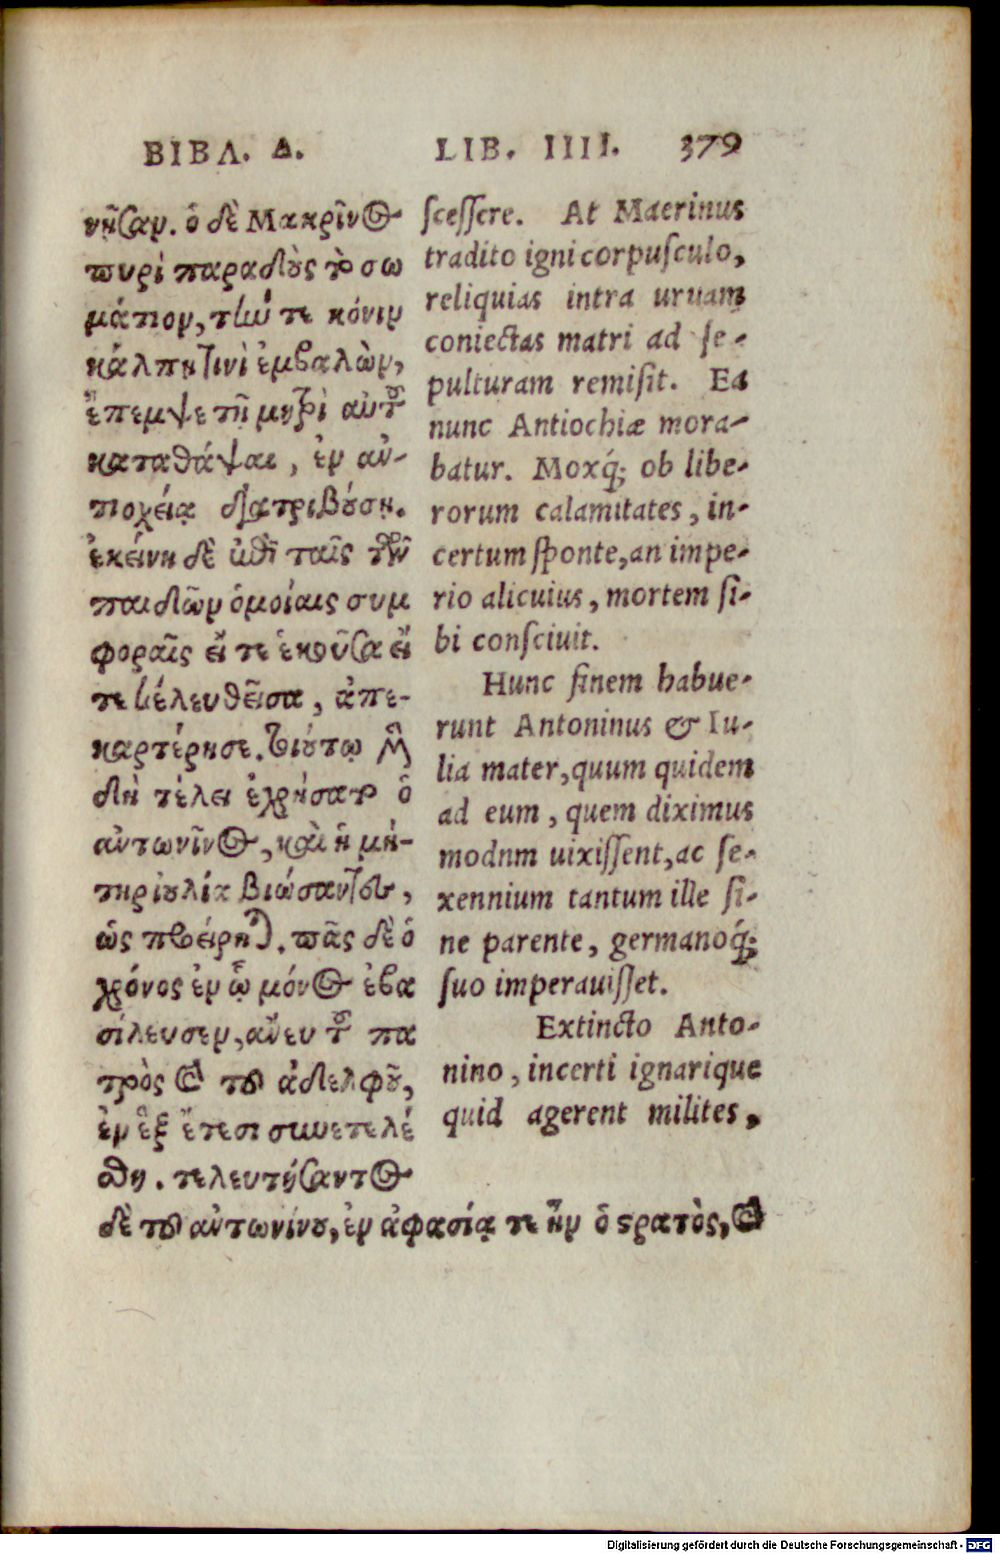 ΒΙΒΛ. Δ. LIB. IIII. 379
νῆσαν. ὁ δὲ Μακρῖνος
πυρὶ παραδοὺς τὸ σω
μάτιον, τήν τε κόνιν
κάλπητινὶ ἐμβαλὼν,
ἔπεμψε τῇ μητρὶ αὐτοῦ
καταθάψαι, ἐν αὐ-
τιοχείᾳ διατριβούσῃ.
ἐκείνη δὲ ἐπὶ ταῖς τῶν
παιδίων ὁμοίαις συμ
φοραῖς εἴ τε ἑκοῦσα εἴ
τε κελευθεῖσα, ἀπε-
καρτέρησε. τοιούτῳ μὲν
δὴ τέλει ἐχρήσατο ὁ
ἀντωνῖνος, καὶ ἡ μή-
τηρ ἰουλία βιώσαντες,
ὡς προείρηται. πᾶς δὲ ὁ
χρόνος ἐν ᾧ μόνος ἐβα
σίλευσεν, ἄνευ τοῦ πα
τρὸς καὶ τοῦ ἀδελφοῦ,
ἐν ἓξ ἔτεσι συνετελέ
σθη. τελευτήσαντος
δὲ τοῦ ἀντωνίνου, ἐν ἀφασίᾳ τε ἦν ὁ στρατὸς, καὶ
ſceſſere. At Maerinus
tradito igni corpuſculo,
reliquias intra urnam
coniectas matri ad ſe-
pulturam remiſit. Ea
nunc Antiochiæ mora-
batur. Moxq́; ob libe-
rorum calamitates, in-
certum ſponte, an impe-
rio alicuius, mortem ſi-
bi conſciuit.
Hunc finem habue-
runt Antoninus & Iu-
lia mater, quum quidem
ad eum, quem diximus
modnm uixiſſent, ac ſe-
xennium tantum ille ſi-
ne parente, germanoq́;
ſuo imperauiſſet.
Extincto Anto-
nino, incerti ignarique
quid agerent milites,
Digitalisierung gefördert durch die Deutsche Forschungsgemeinschaft - DFG